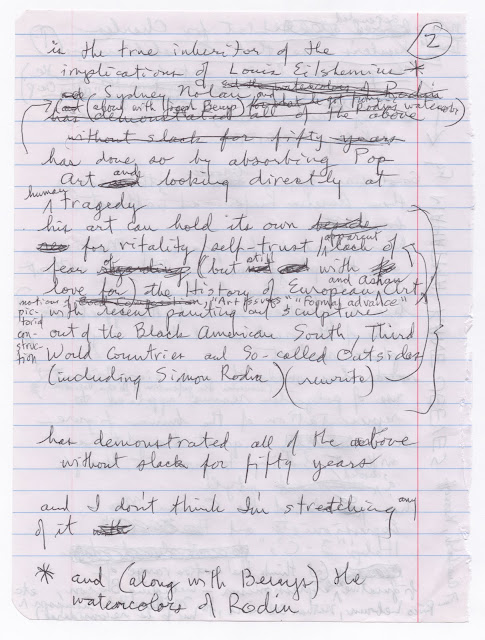 2
is the true inheritor of the
implications of Louis Eilshemius *
Sydney Nolan and
(along with Berrys)
has demonstrated all of the above
without slack for fifty years
has done so by absorbing Pop
Art and looking directly at
human tragedy
his art can hold its own beside
for vitality / self-trust / apparent lack of
fear (but still with
love for) the History of European and Asian Art,
notions of pictorial construction, "Art Issues" "Formal advance"
with recent painting and sculpture
out of the Black American South, Third
World Countries and So-called Outsides
(including Simon Rodia) (rewrite)
has demonstrated all of the above
without slack for fifty years
and I don't think I'm stretching any
of it
* and (along with Berrys) the
watercolors of Rodin